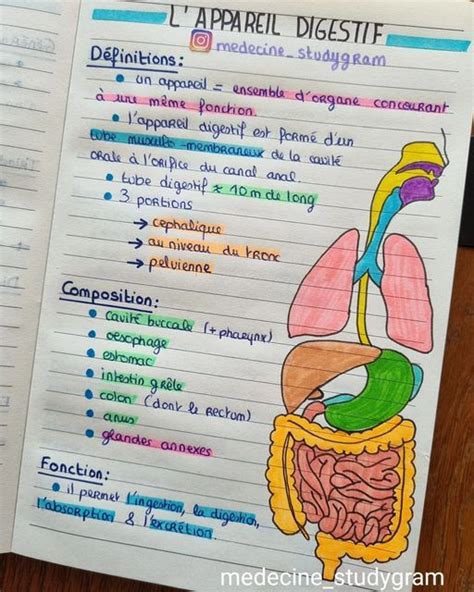 L'APPAREIL DIGESTIF
medecine_studygram
Définitions:
• un appareil = ensemble d'organe concourant
à une même fonction.
• l'appareil digestif est formé d'un
tube musculo-membraneux de la cavité
orale à l'orifice du canal anal.
• tube digestif ≈ 10 m de long
• 3 portions
→ cephalique
→ au niveau du tronc
→ pelvienne
Composition:
• cavité buccale (+ pharynx)
• oesophage
• estomac
• intestin grêle
• colon (dont le rectum)
• anus
• glandes annexes
Fonction:
• il permet l'ingestion, la digestion,
l'absorption & l'excrétion.
medecine_studygram